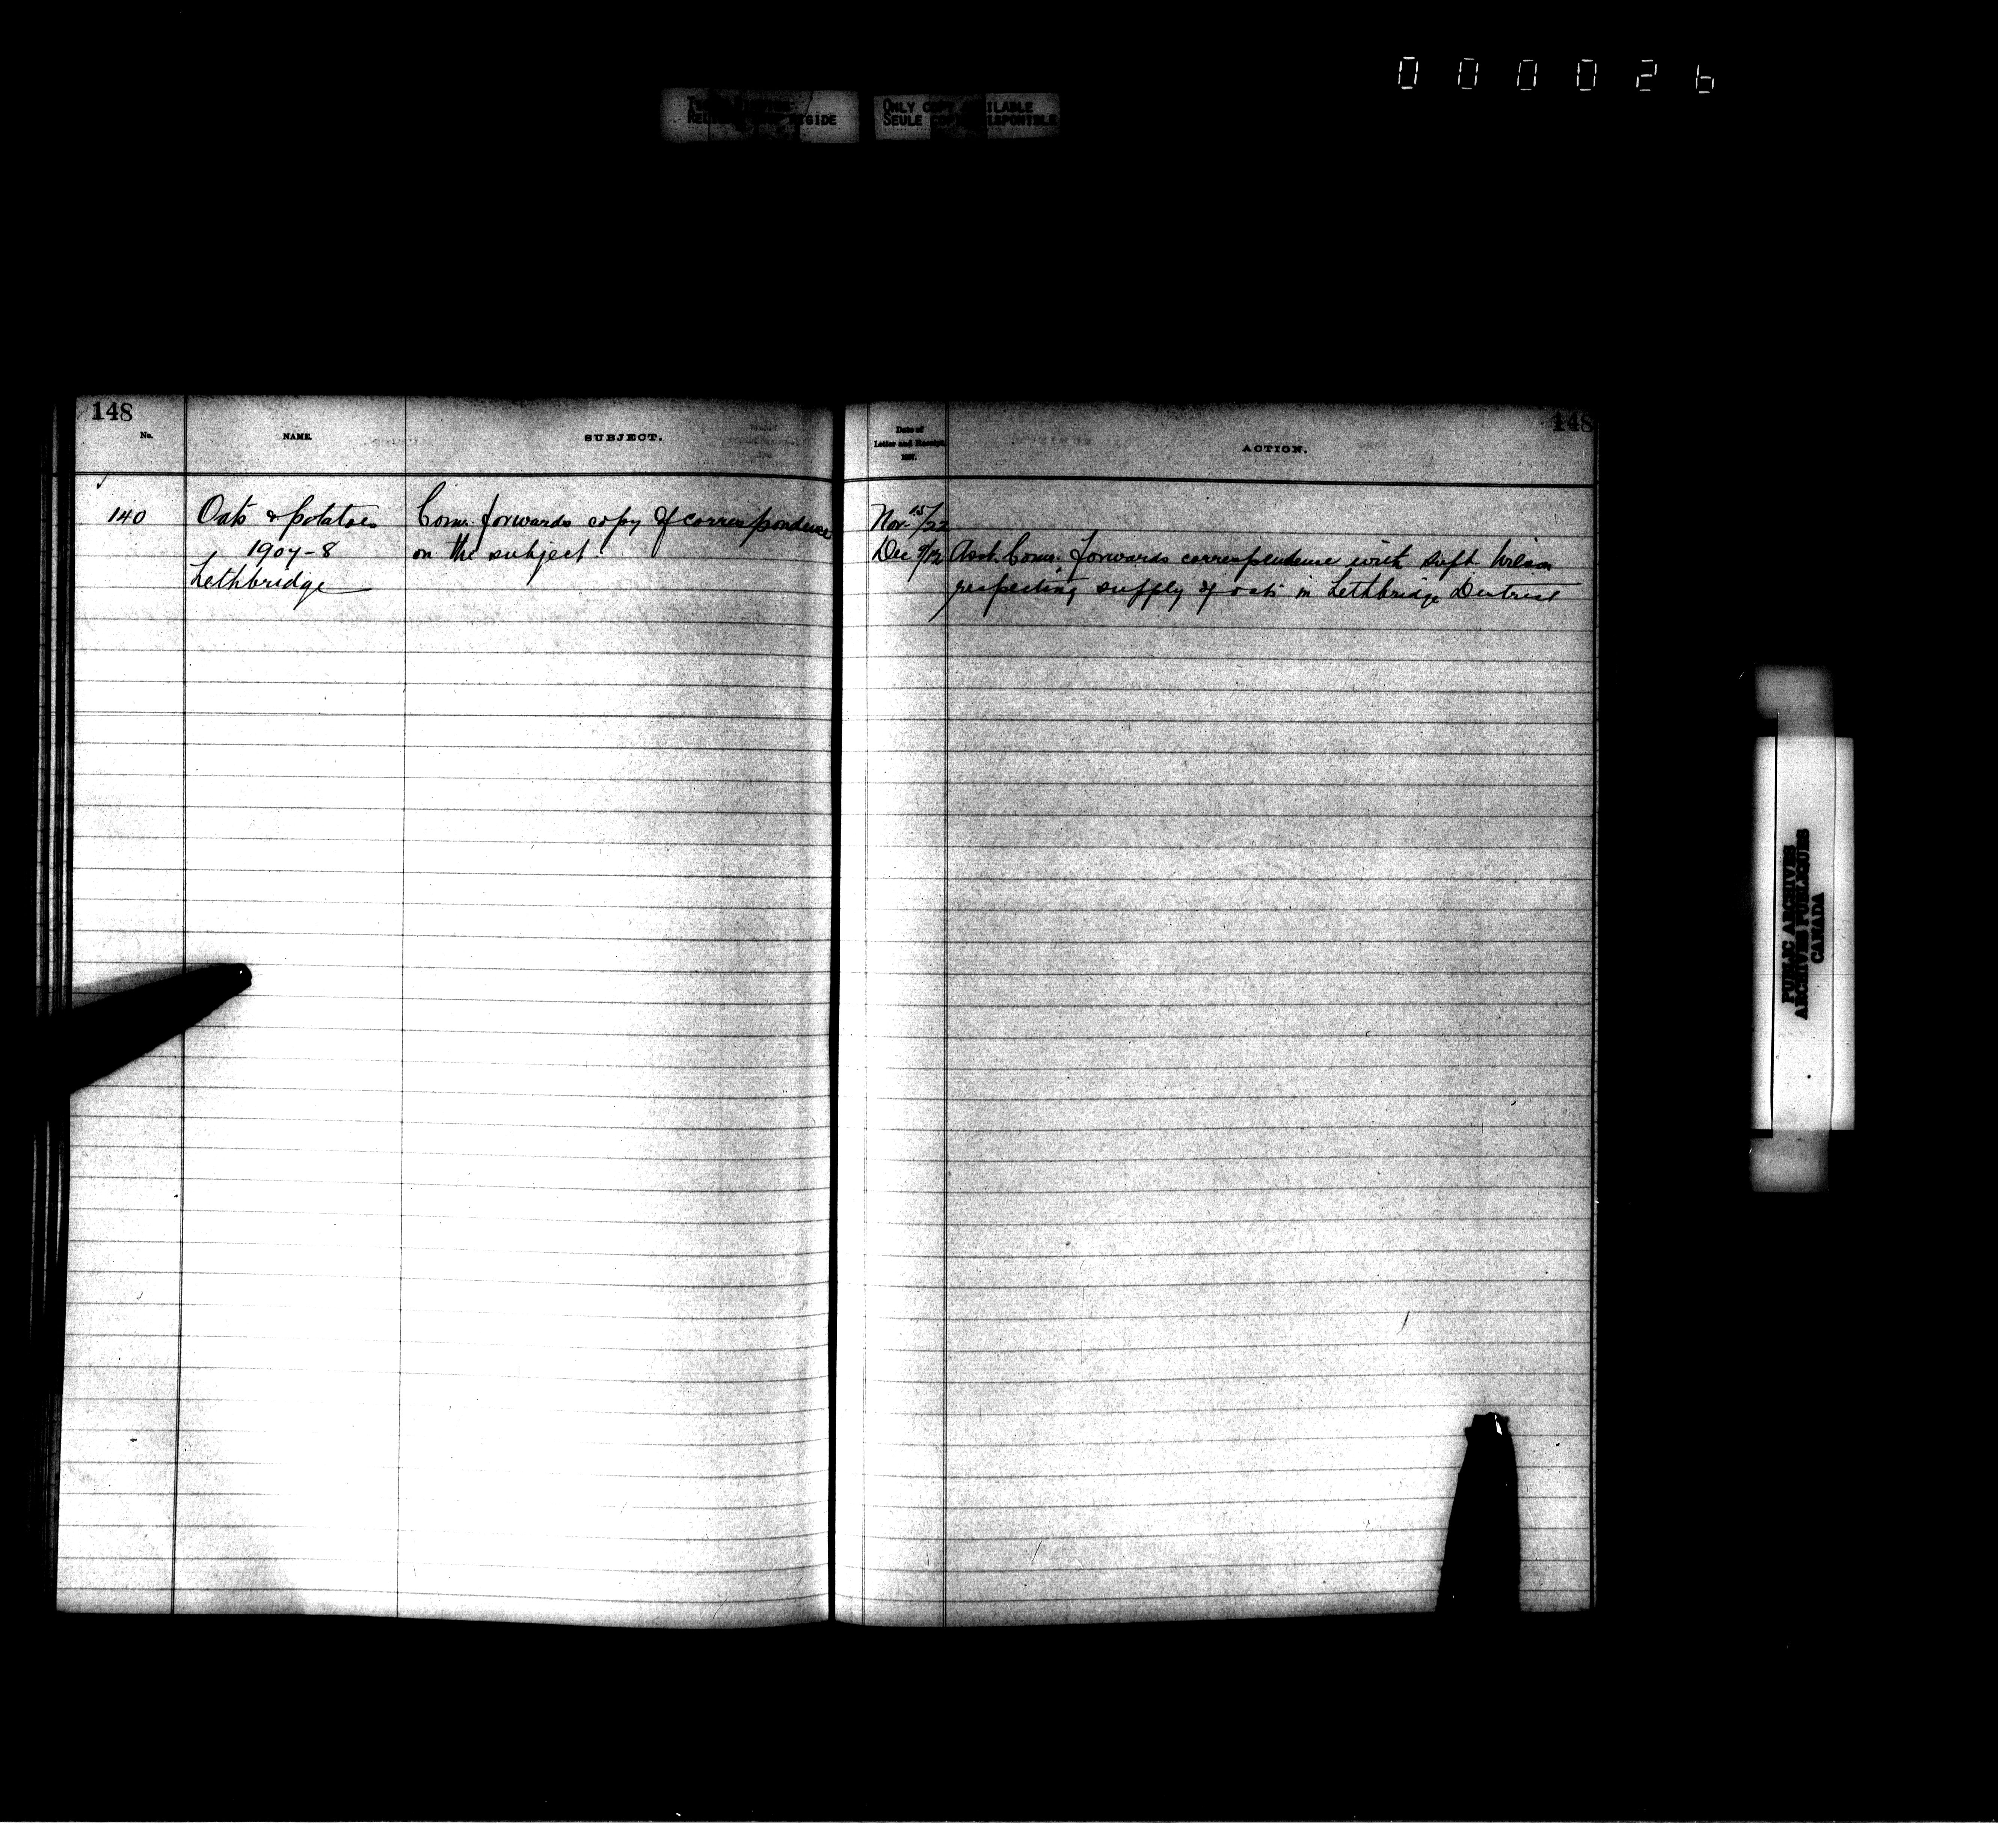 000026
TIGHT BINDING
RELIURE TROP RIGIDE
ONLY COPY AVAILABLE
SEULE COPIE DISPONIBLE
148
No.
NAME.
SUBJECT.
140
Oats & potatoes
1907-8
Lethbridge
Comr. forwards copy of correspondence
on the subject
148
Date of
Letter and Receipt,
ACTION.
Nov 15/22
Dec 9/12 Asst. Comr. forwards correspondence with Supt. Wilson
respecting supply of oats in Lethbridge District
PUBLIC ARCHIVES
ARCHIVES PUBLIQUES
CANADA